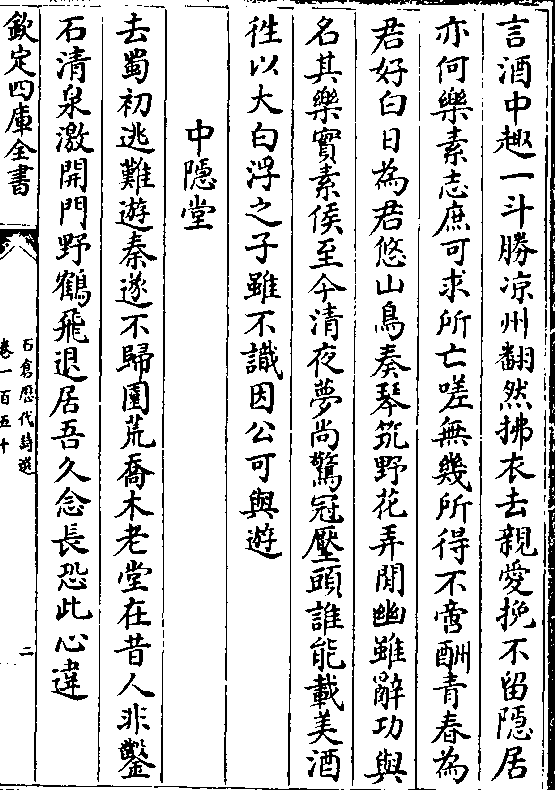 言酒中趣一斗勝凉州翻然拂衣去親愛挽不留隠居
亦何樂素志庶可求所亡嗟無幾所得不啻酬青春為
君好白日為君悠山鳥奏琴筑野花弄閒幽雖辭功與
名其樂實素侯至今清夜夢尚驚冠壓頭誰能載美酒
徃以大白浮之子雖不識因公可與遊
中隠堂
去蜀初逃難遊秦遂不歸園荒喬木老堂在昔人非鑿
石清泉激開門野鶴飛退居吾久念長恐此心違
欽定四庫全書
石倉歴代詩選
卷一百五十
二